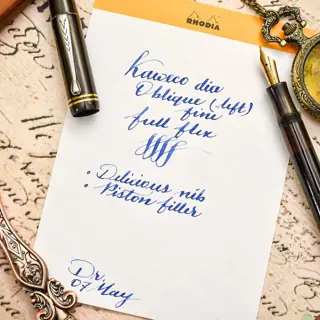 RHODIA
Kaweco dia
Oblique (left)
fine
full flex
• Delicious nib
• Piston filler
Dr.
07. May